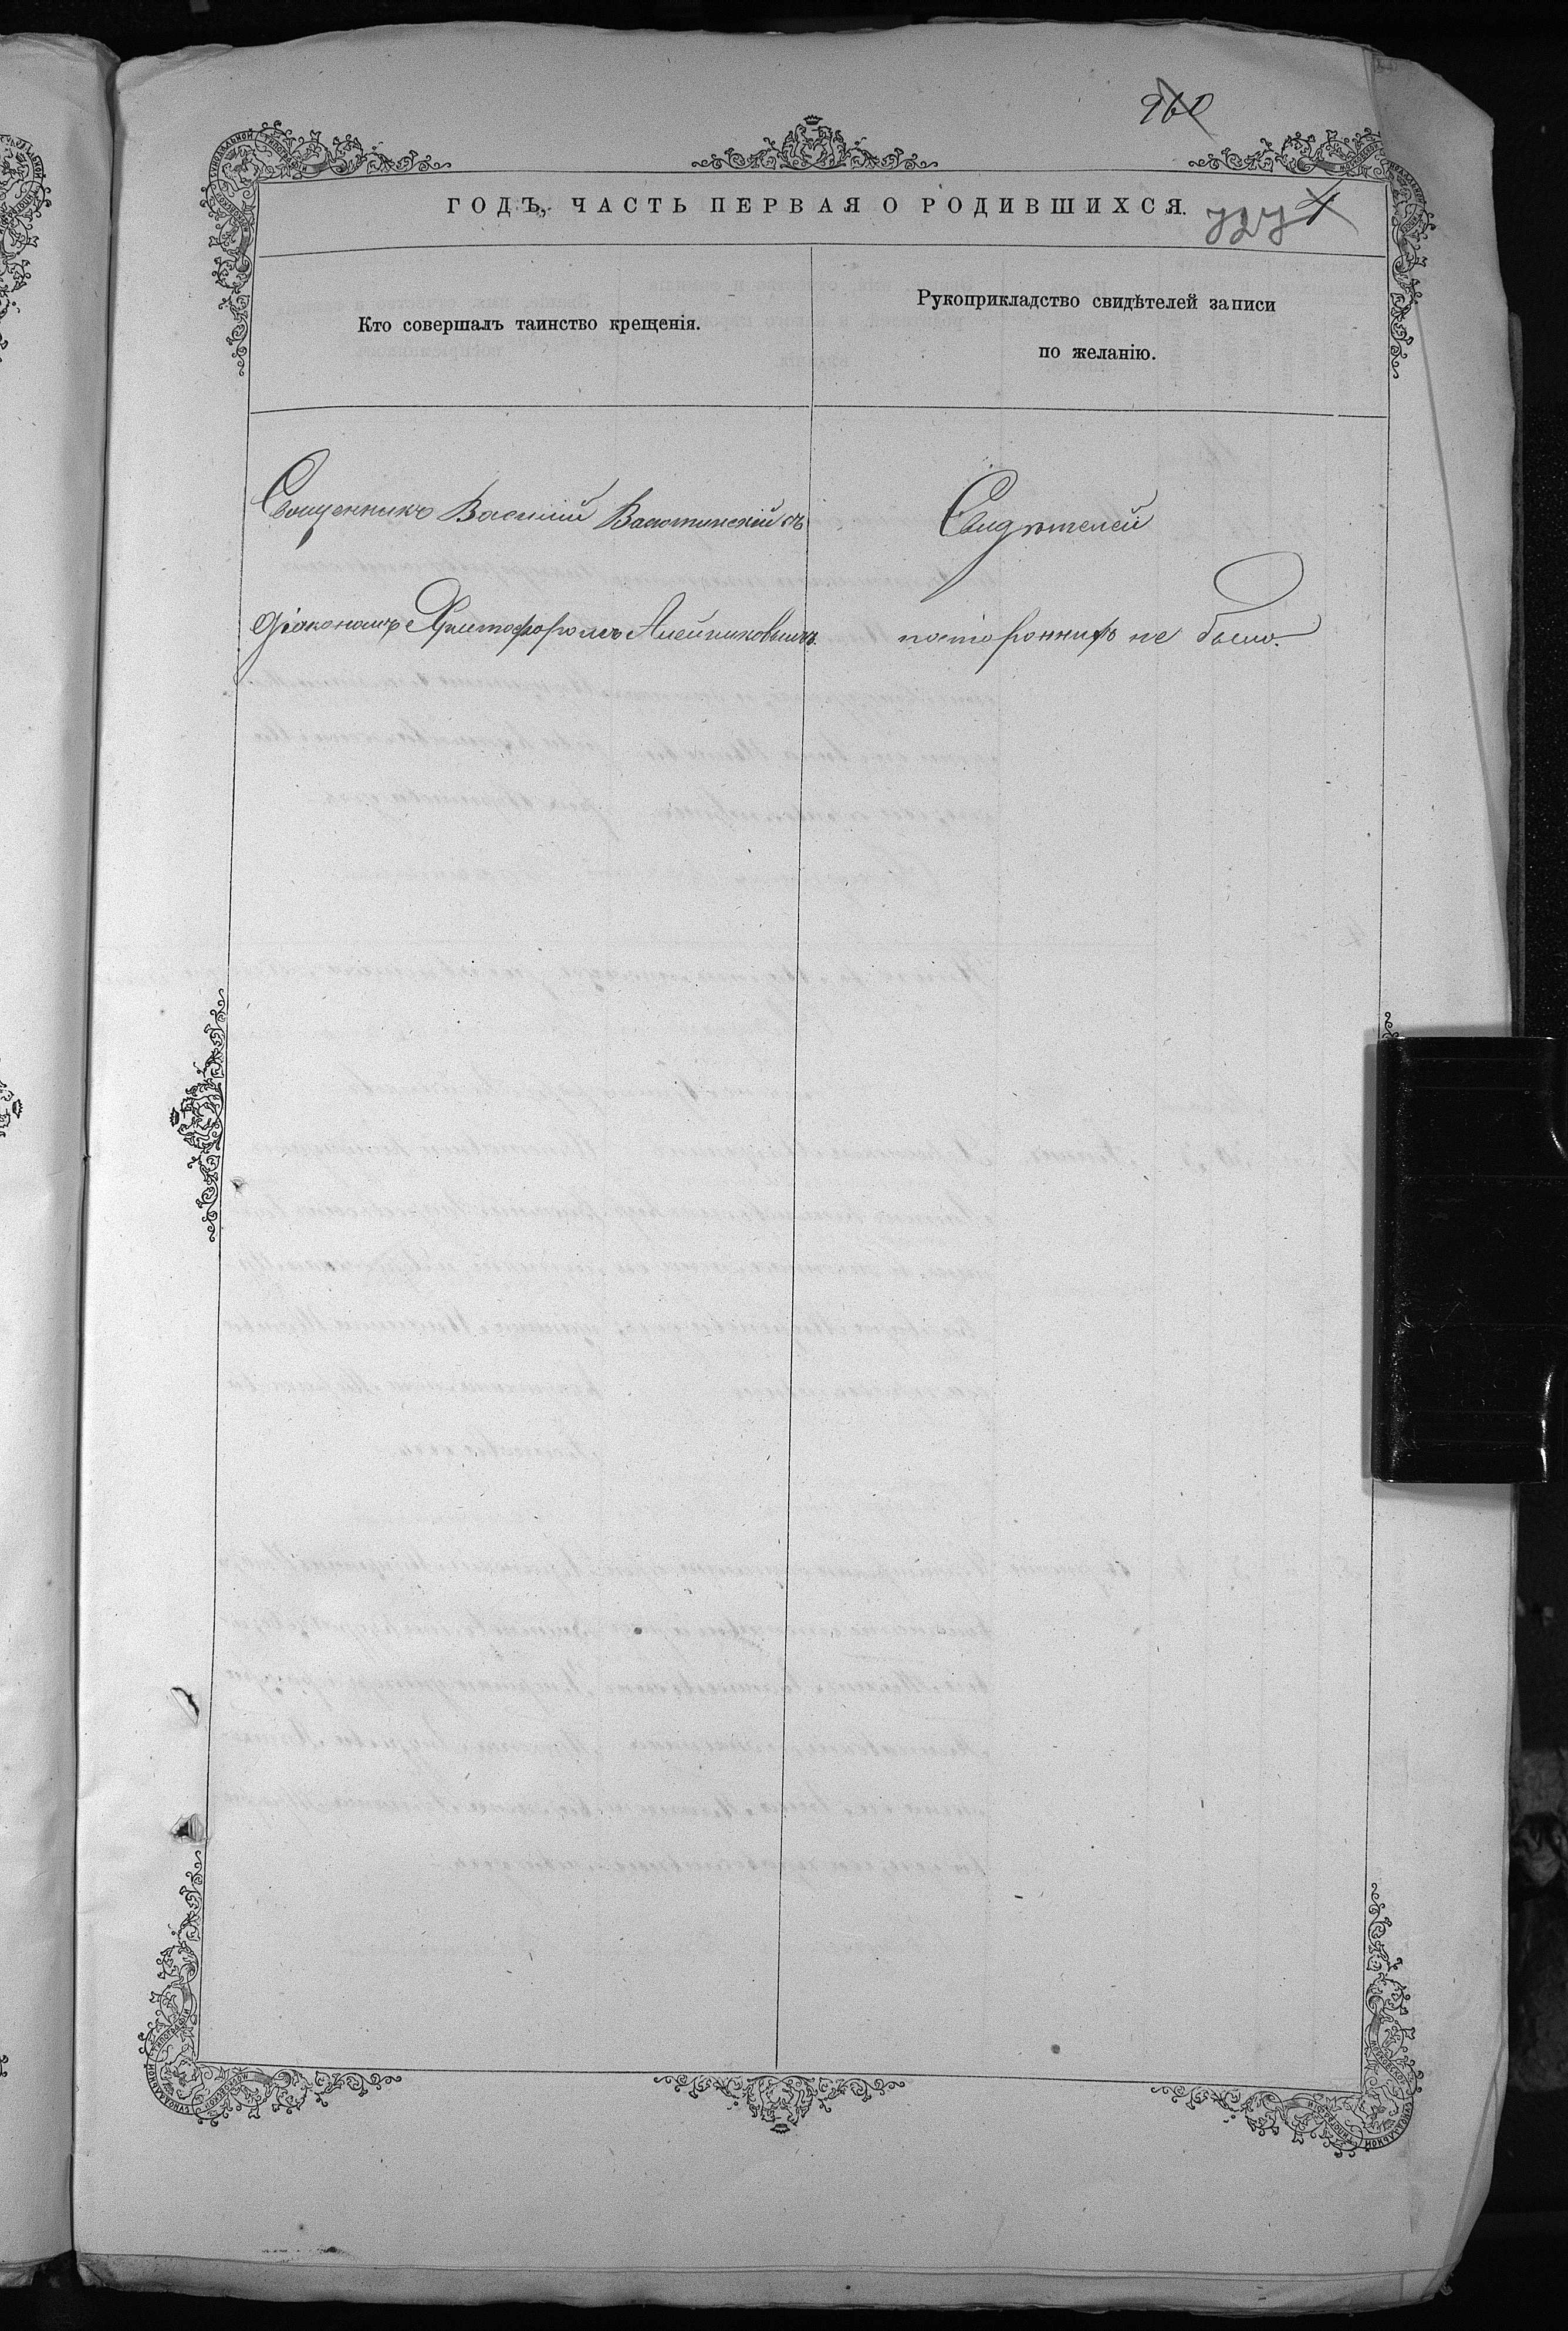 960
ГОДЪ, ЧАСТЬ ПЕРВАЯ О РОДИВШИХСЯ.
727
Кто совершалъ таинство крещенія.
Рукоприкладство свидѣтелей записи
по желанію.
Священникъ Василій Васютинскій съ
діакономъ Христофоромъ Алейниковымъ.
Свидѣтелей
постороннихъ не было.